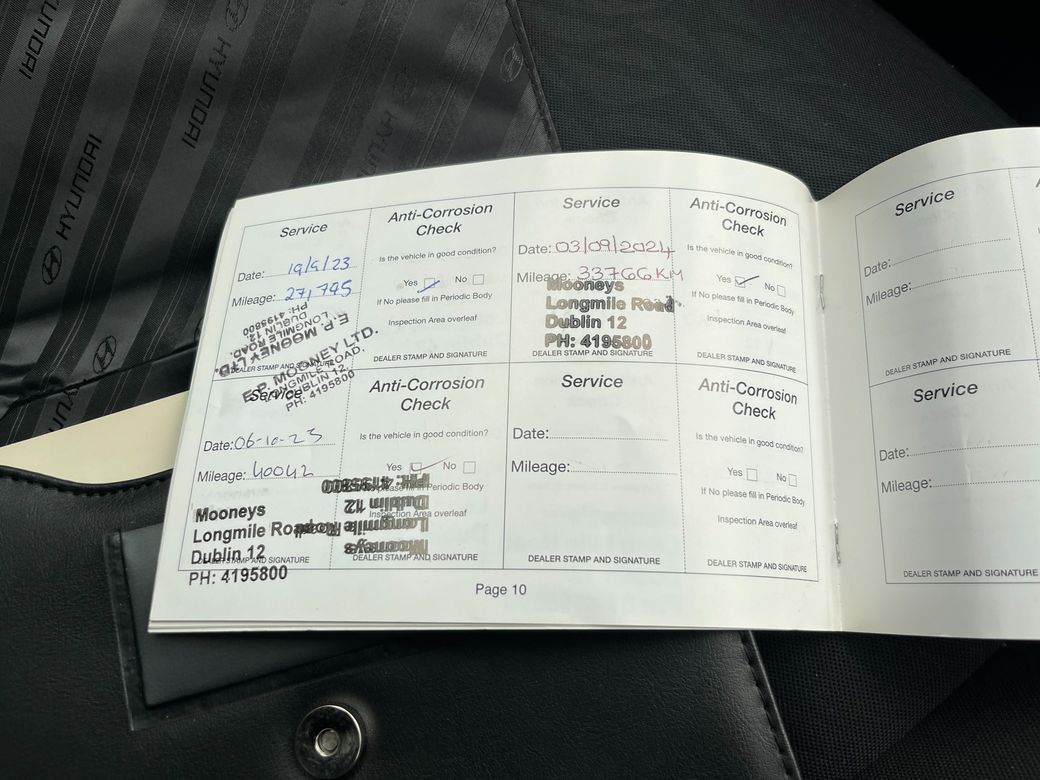 HYUNDAI
HYUNDAI
HYUNDAI
Service
Date: 19/9/23
Mileage: 27,745
E. P. MOONEY LTD.
LONGMILE ROAD,
DUBLIN 12.
PH: 4195800
DEALER STAMP AND SIGNATURE
E. P. MOONEY LTD.
LONGMILE ROAD,
DUBLIN 12.
PH: 4195800
Anti-Corrosion
Check
Is the vehicle in good condition?
Yes No
If No please fill in Periodic Body
Inspection Area overleaf
DEALER STAMP AND SIGNATURE
Service
Date: 03/09/2024
Mileage: 33766KM
Mooneys
Longmile Road
Dublin 12
PH: 4195800
Anti-Corrosion
Check
Is the vehicle in good condition?
Yes No
If No please fill in Periodic Body
Inspection Area overleaf
DEALER STAMP AND SIGNATURE
Service
Date: 06-10-23
Mileage: 40042
Mooneys
Longmile Road
Dublin 12
DEALER STAMP AND SIGNATURE
PH: 4195800
Anti-Corrosion
Check
Is the vehicle in good condition?
Yes No
please fill in Periodic Body
Inspection Area overleaf
PH: 4195800
Dublin 12
Longmile Road
Mooneys
DEALER STAMP AND SIGNATURE
Service
Date:
Mileage:
DEALER STAMP AND SIGNATURE
Anti-Corrosion
Check
Is the vehicle in good condition?
Yes No
If No please fill in Periodic Body
Inspection Area overleaf
DEALER STAMP AND SIGNATURE
Page 10
Service
Date:
Mileage:
DEALER STAMP AND SIGNATURE
Service
Date:
Mileage:
DEALER STAMP AND SIGNATURE